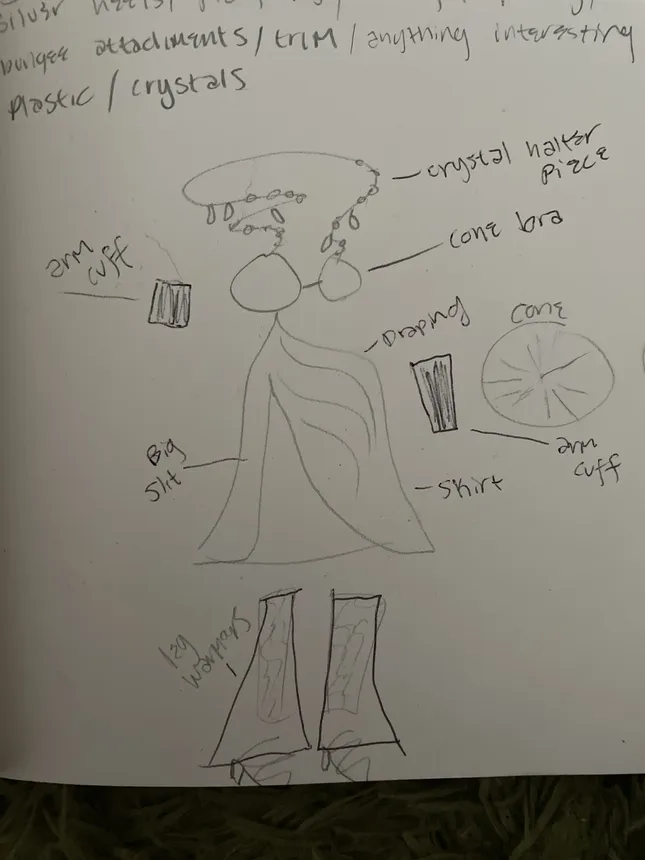 silver heels/
bungee attachments/trim/anything interesting
plastic/crystals
crystal halter
piece
cone bra
arm
cuff
Draping
cone
Big
slit
arm
cuff
skirt
leg
warmers